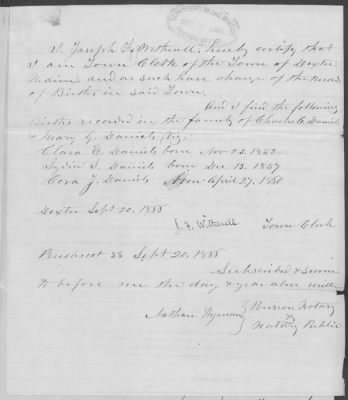 I, Joseph F. Witherell, hereby certify that
I am Town Clerk of the Town of Dexter
Maine and as such have charge of the records
of Births in said Town.
And I find the following
Births recorded in the family of Charles A. Daniels
& Mary G. Daniels, viz;
Clara E. Daniels born Nov 22 1852
Lydia S. Daniels born Dec 13. 1857
Cora J. Daniels born April 27. 18
Dexter Sept 20, 1888
J. F. Witherell Town Clerk
ss Sept 20, 1888
Subscribed & sworn
to before me the day & year above written
Nathan Wyman } Pension Notary
&
Notary Public